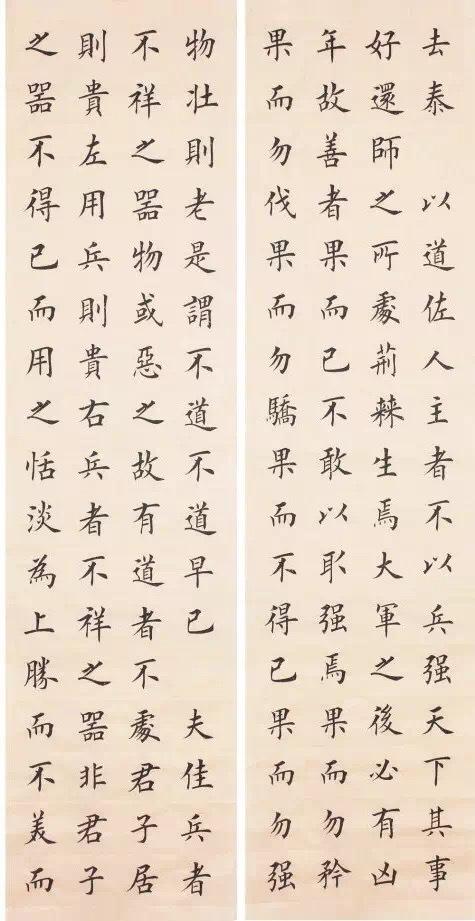 去泰　以道佐人主者不以兵强天下其事
好還師之所處荆棘生焉大軍之後必有凶
年故善者果而已不敢以取强焉果而勿矜
果而勿伐果而勿驕果而不得已果而勿强
物壯則老是謂不道不道早已　夫佳兵者
不祥之器物或惡之故有道者不處君子居
則貴左用兵則貴右兵者不祥之器非君子
之器不得已而用之恬淡為上勝而不美而